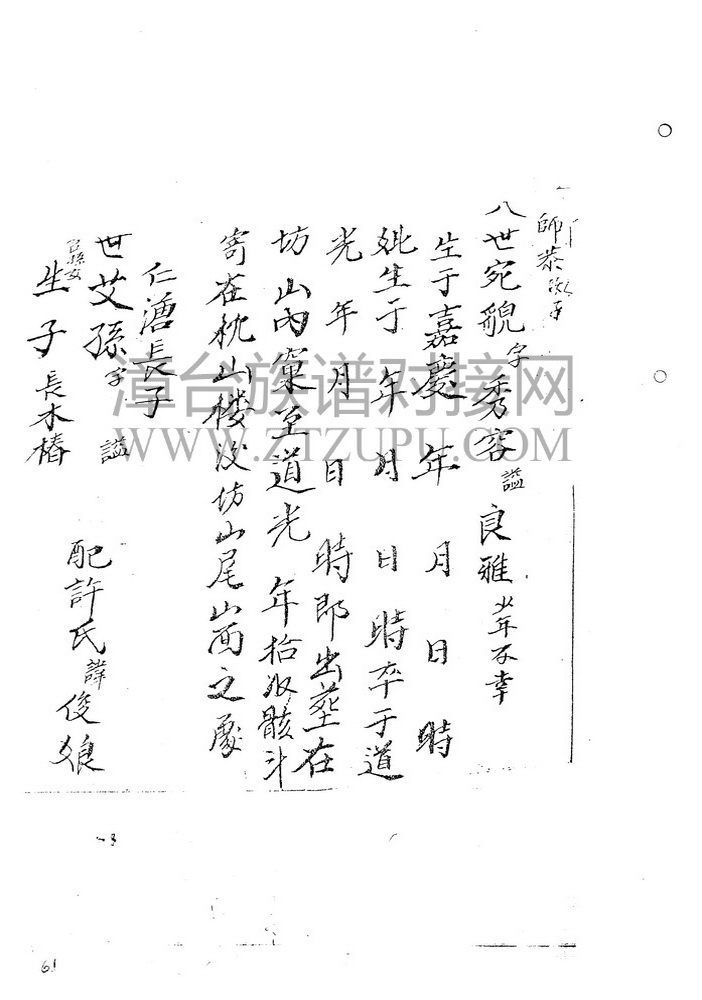 師恭
八世宛貌字秀容謚良雅少年不幸
生于嘉慶 年 月 日 時
妣生于 年 月 日 時卒于道
光 年 月 日 時即出塟在
坊山內窠至道光 年拾収骸斗
寄在枕山楼後坊山尾山西之處
仁湭長子
世艾孫字 謚 配許氏諱俊娘
生子長木椿
漳台族谱对接网
WWW.ZTZUPU.COM
61